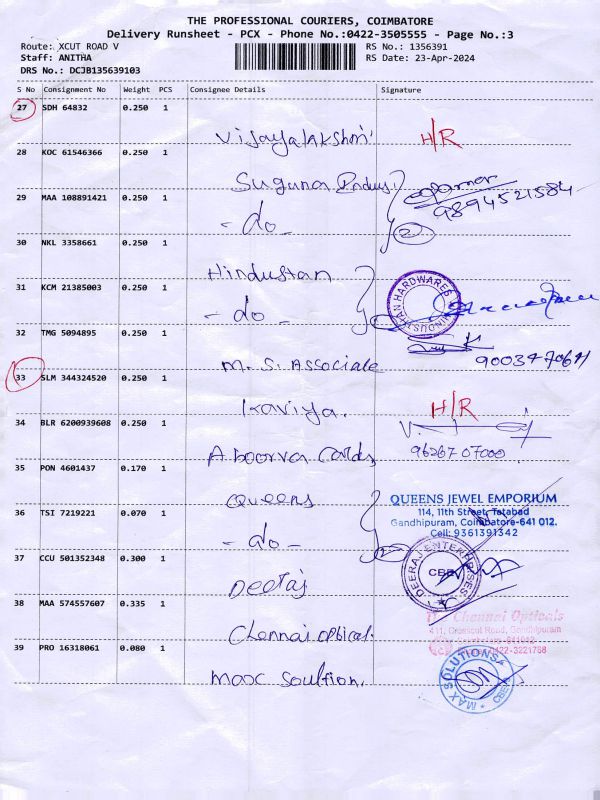 THE PROFESSIONAL COURIERS, COIMBATORE
Delivery Runsheet - PCX - Phone No.:0422-3505555 - Page No.:3
Route: XCUT ROAD V
RS No.: 1356391
Staff: ANITHA
RS Date: 23-Apr-2024
DRS No.: DCJB135639103
S No Consignment No Weight PCS Consignee Details Signature
27 SDH 64832 0.250 1
Vijayalakshmi H/R
28 KOC 61546366 0.250 1
Suguna Indus
9894521584
29 MAA 108891421 0.250 1
- do - 2
30 NKL 3358661 0.250 1
Hindustan
HINDUSTHAN HARDWARES
31 KCM 21385003 0.250 1
- do -
32 TMG 5094895 0.250 1
M. S. Associate
33 SLM 344324520 0.250 1
Kaviya. H/R
34 BLR 6200939608 0.250 1
Aboorva Cards 9626707000
35 PON 4601437 0.170 1
Queens
QUEENS JEWEL EMPORIUM
114, 11th Street, Tatabad
Gandhipuram, Coimbatore-641 012.
Cell: 9361391342
36 TSI 7219221 0.070 1
- do - 2
37 CCU 501352348 0.300 1
Deeraj
DEERAJ ENTERPRISES
CBE
38 MAA 574557607 0.335 1
Chennai optical.
The Chennai Opticals
411, Crosscut Road, Gandhipuram
39 PRO 16318061 0.080 1
Max Soultion.
MAX SOLUTIONS
CBE